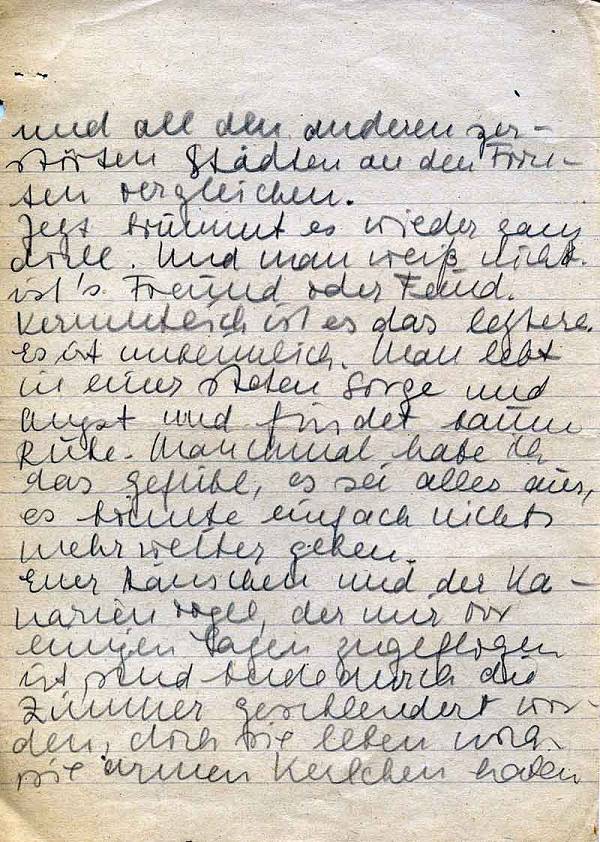 und all den anderen zer-
störten Städten an den Fron-
ten vergleichen.
Jetzt brummt es wieder ganz
doll. Und man weiß nicht.
ist's Freund oder Feind.
Vermutlich ist es das letztere.
Es ist unheimlich. Man lebt
in einer steten Sorge und
Angst und findet kaum
Ruhe. Manchmal habe ich
das Gefühl, es sei alles aus,
es könnte einfach nichts
mehr weiter gehen.
Euer Hänschen und der Ka-
narienvogel, der mir vor
einigen Tagen zugeflogen
ist sind beide durch die
Zimmer geschleudert wor-
den, doch sie leben noch.
die armen Kerlchen haben